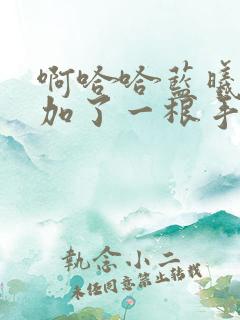 啊哈哈蓝曦
加了一根手
執念小二
未经同意禁止转载